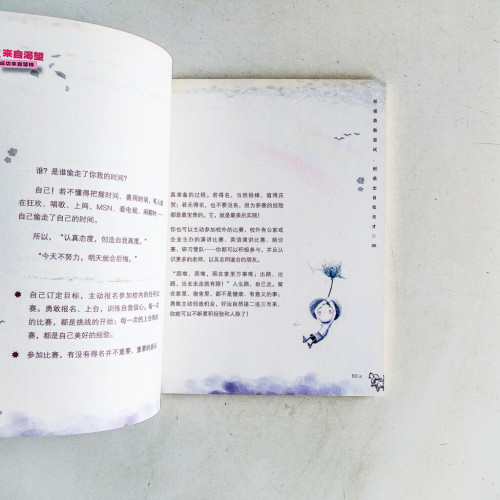 来自渴望
成功来自坚持
谁？是谁偷走了你我的时间？
自己！若不懂得把握时间、善用时间，有人
在狂欢、唱歌、上网、MSN、看电视、闲聊时……
自己偷走了自己的时间。
所以，“认真态度，创造自我高度。”
“今天不努力，明天就会后悔。”
自己订定目标，主动报名参加校内的任何比
赛。勇敢报名、上台，训练自我信心。每一次
的比赛，都是挑战的开始；每一次的上台
，都是自己美好的经验。
参加比赛，有没有得名并不重要，重要的是
真准备的过程。若得名，当然很棒，值得庆
贺；若无得名，也不要沮丧，因为参赛的经验
都是最宝贵的。它，就是最美的实践！
你也可以主动参加校外的比赛。校外有公家或
企业主办的演讲比赛、英语演讲比赛、辩论
赛、研习营队……你都可以积极参与，并且认
识更多的老师，以及志同道合的朋友。
“困难，困难，困在家里万事难；出路，出
路，出去走走就有路！”人生路，自己走。窝
在家里、宿舍里，都不是健康、有意义的事；
勇敢主动创造机会，好运自然接二连三而来，
你就可以不断累积经验和人脉了！
83